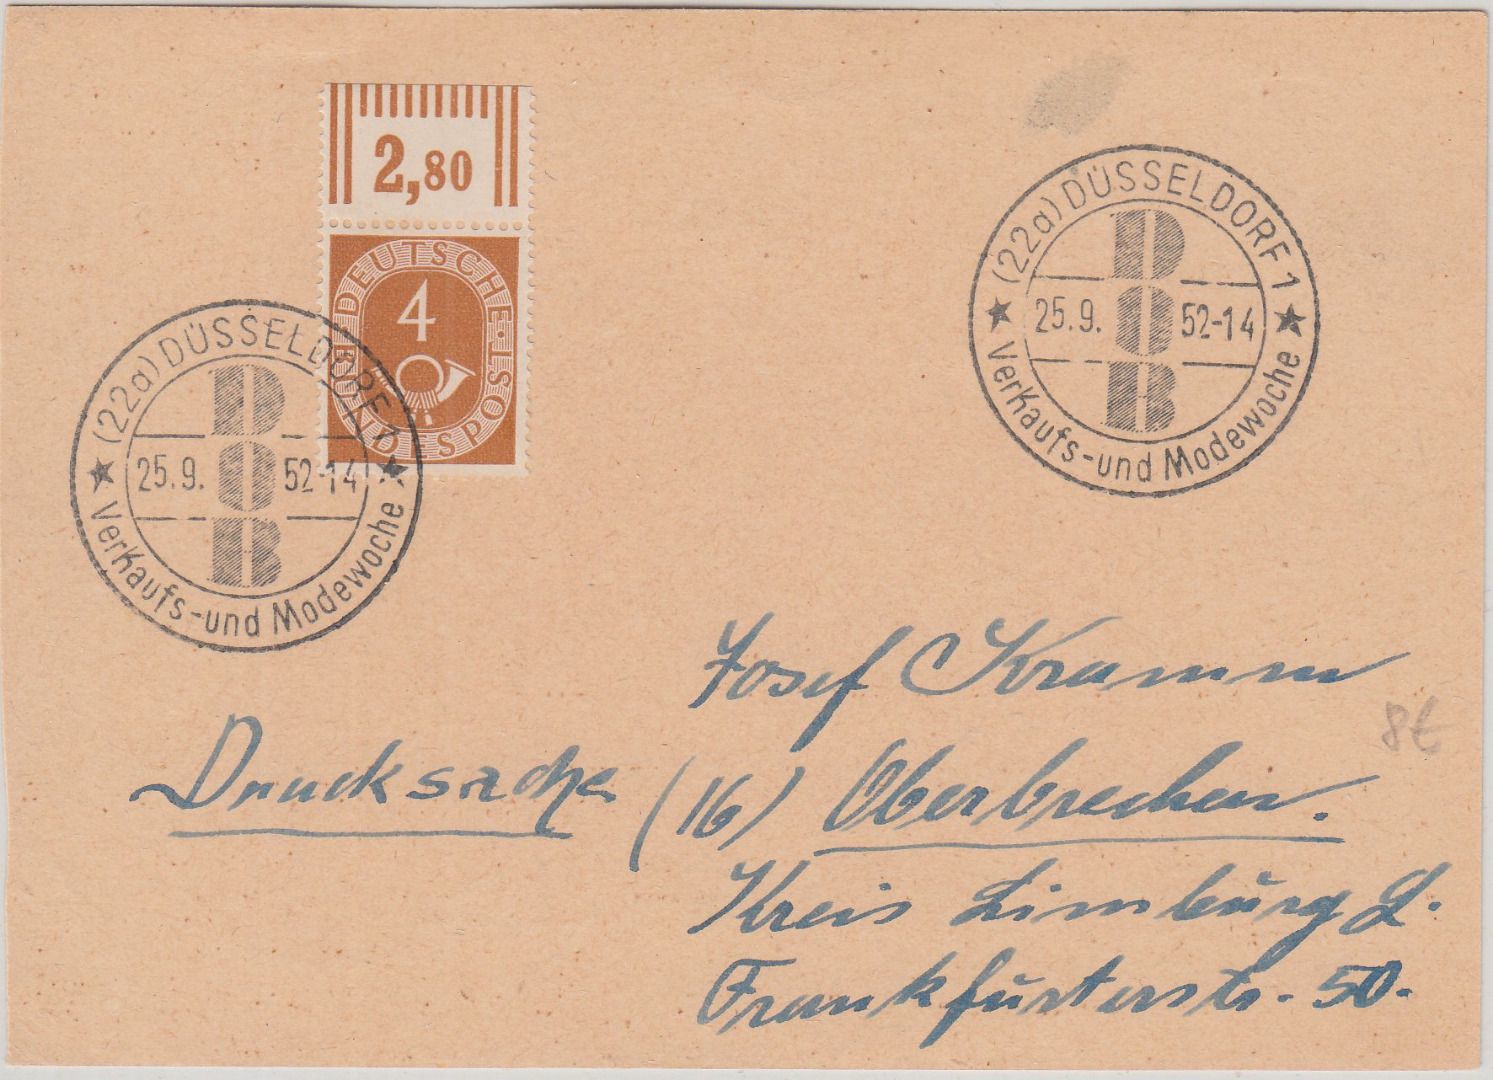 2,80
DEUTSCHE BUNDESPOST
4
(22a) DÜSSELDORF 1
DOB
25.9. 52-14
Verkaufs-und Modewoche
(22a) DÜSSELDORF 1
DOB
25.9. 52-14
Verkaufs-und Modewoche
Josef Kramm
8€
Drucksache (16) Oberbrechen.
Kreis Limburg L.
Frankfurterstr. 50.